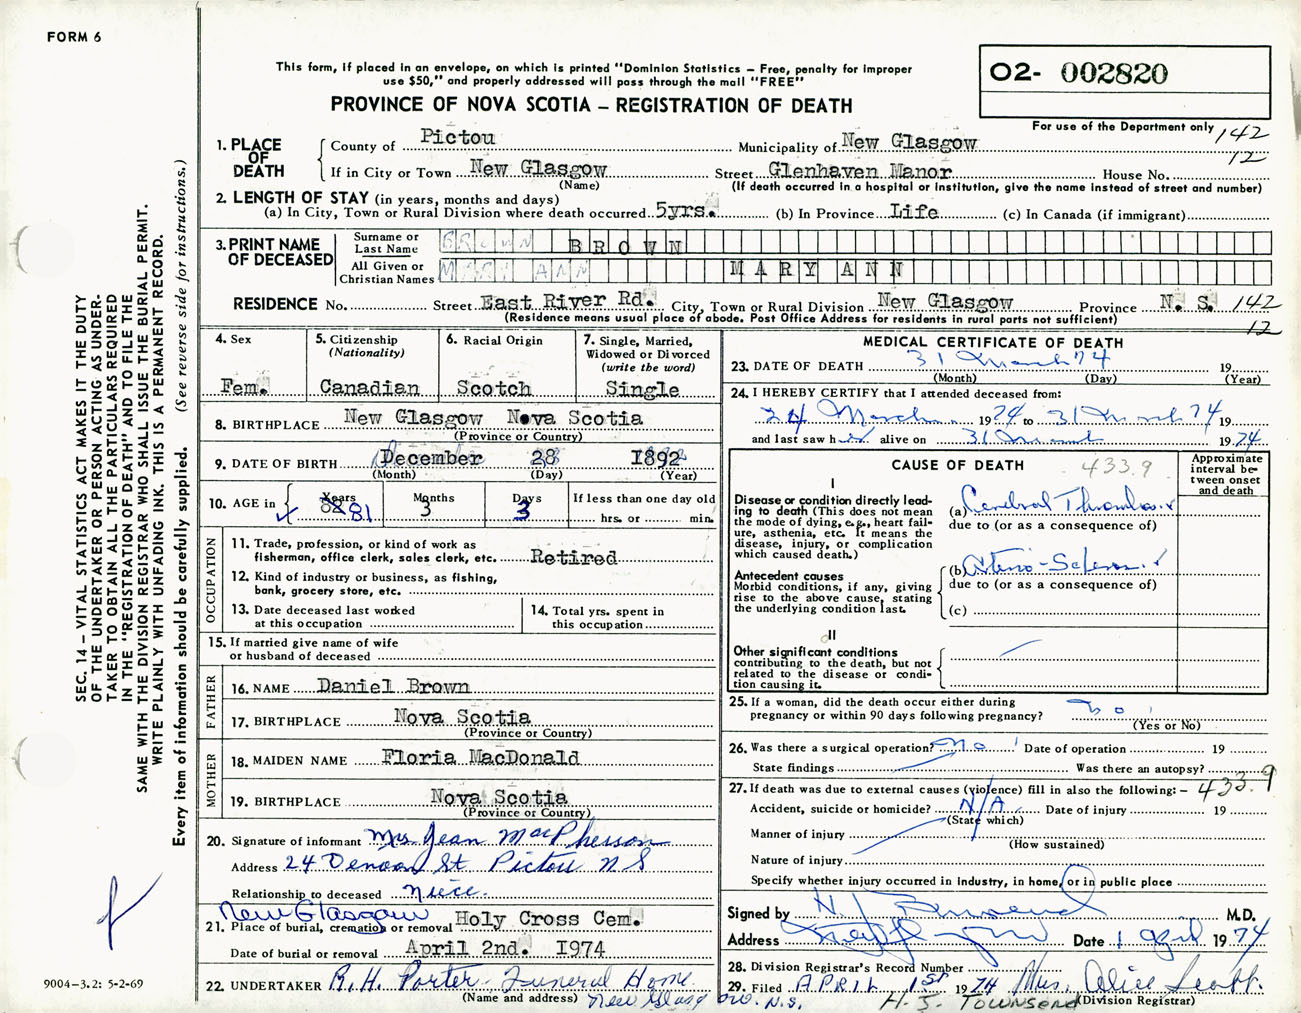 FORM 6
This form, if placed in an envelope, on which is printed "Dominion Statistics – Free, penalty for improper
use $50," and properly addressed will pass through the mail "FREE"
O2- 002820
PROVINCE OF NOVA SCOTIA – REGISTRATION OF DEATH
For use of the Department only 142
12
1. PLACE OF DEATH
County of Pictou Municipality of New Glasgow
If in City or Town New Glasgow Street Glenhaven Manor House No.
(Name) (If death occurred in a hospital or institution, give the name instead of street and number)
2. LENGTH OF STAY (in years, months and days)
(a) In City, Town or Rural Division where death occurred 5yrs. (b) In Province Life (c) In Canada (if immigrant)
3. PRINT NAME OF DECEASED
Surname or Last Name BROWN BROWN
All Given or Christian Names MARY ANN MARY ANN
RESIDENCE No. Street East River Rd. City, Town or Rural Division New Glasgow Province N. S. 142
(Residence means usual place of abode. Post Office Address for residents in rural parts not sufficient) 12
4. Sex
Fem.
5. Citizenship
(Nationality)
Canadian
6. Racial Origin
Scotch
7. Single, Married,
Widowed or Divorced
(write the word)
Single
8. BIRTHPLACE New Glasgow Nova Scotia
(Province or Country)
9. DATE OF BIRTH December 28 1892
(Month) (Day) (Year)
10. AGE in Years Months Days If less than one day old
82 81 3 3 hrs. or min.
OCCUPATION
11. Trade, profession, or kind of work as
fisherman, office clerk, sales clerk, etc. Retired
12. Kind of industry or business, as fishing,
bank, grocery store, etc.
13. Date deceased last worked
at this occupation
14. Total yrs. spent in
this occupation
15. If married give name of wife
or husband of deceased
FATHER
16. NAME Daniel Brown
17. BIRTHPLACE Nova Scotia
(Province or Country)
MOTHER
18. MAIDEN NAME Floria MacDonald
19. BIRTHPLACE Nova Scotia
(Province or Country)
20. Signature of informant Mrs Jean MacPherson
Address 24 Denoon St Pictou N S
Relationship to deceased Niece.
New Glasgow
21. Place of burial, cremation or removal Holy Cross Cem.
Date of burial or removal April 2nd. 1974
22. UNDERTAKER R. H. Porter Funeral Home
(Name and address) New Glasgow. N.S.
MEDICAL CERTIFICATE OF DEATH
23. DATE OF DEATH 31 March 74 19
(Month) (Day) (Year)
24. I HEREBY CERTIFY that I attended deceased from:
24 March 1974 to 31 March 74 19
and last saw her alive on 31 March 1974
CAUSE OF DEATH 433.9
Approximate
interval be-
tween onset
and death
I
Disease or condition directly lead-
ing to death (This does not mean
the mode of dying, e.g., heart fail-
ure, asthenia, etc. It means the
disease, injury, or complication
which caused death.)
(a) Cerebral Thrombosis
due to (or as a consequence of)
Antecedent causes
Morbid conditions, if any, giving
rise to the above cause, stating
the underlying condition last.
(b) Arterio-Scleros.
due to (or as a consequence of)
(c)
II
Other significant conditions
contributing to the death, but not
related to the disease or condi-
tion causing it.
25. If a woman, did the death occur either during
pregnancy or within 90 days following pregnancy? no
(Yes or No)
26. Was there a surgical operation? No Date of operation 19
State findings Was there an autopsy?
27. If death was due to external causes (violence) fill in also the following: – 433.9
Accident, suicide or homicide? N/A Date of injury 19
(State which)
Manner of injury
(How sustained)
Nature of injury
Specify whether injury occurred in industry, in home, or in public place
Signed by H. J. Townsend M.D.
Address Date 1 April 1974
28. Division Registrar's Record Number
29. Filed APRIL 1ST 1974 Mrs. Alice Scott.
H. J. TOWNSEND (Division Registrar)
SEC. 14 – VITAL STATISTICS ACT MAKES IT THE DUTY
OF THE UNDERTAKER OR PERSON ACTING AS UNDER-
TAKER TO OBTAIN ALL THE PARTICULARS REQUIRED
IN THE "REGISTRATION OF DEATH" AND TO FILE THE
SAME WITH THE DIVISION REGISTRAR WHO SHALL ISSUE THE BURIAL PERMIT.
WRITE PLAINLY WITH UNFADING INK. THIS IS A PERMANENT RECORD.
Every item of information should be carefully supplied. (See reverse side for instructions.)
9004-3.2: 5-2-69